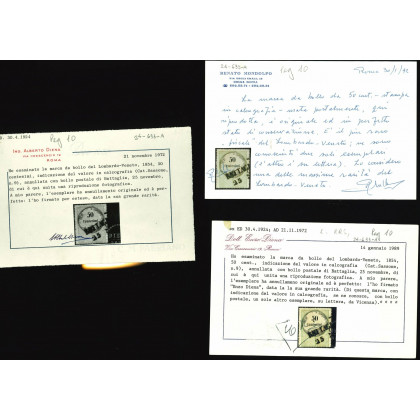 ED. 30.4.1954
Pag 10
26-633-A
ING. ALBERTO DIENA
ROMA
21 novembre 1972
Ho esaminato la marca da bollo del Lombardo-Veneto, 1854, 50
centesimi, indicazione del valore in calcografia (Cat.Sassone,
n.9), annullata con bollo postale di Battaglia, 25 novembre,
di cui è qui unita una riproduzione fotografica. A mio pare-
re, l'esemplare è annullato originalmente ed è perfetto:
l'ho firmato per esteso, data la sua grande rarità.
26-633-A
Pag 10
RENATO MONDOLFO
Roma 30/1/92
La marca da bollo da 50 cent. - stampa
in calcografia - usata postalmente, qui
riprodotta, è originale ed in perfetto
stato di conservazione. È il più raro
fiscale del Lombardo-Veneto; ne sono
conosciuti due soli esemplari
(l'altro è su lettera). La considero
una delle massime rarità del
Lombardo-Veneto.
ED 30.4.1954; AD 21.11.1972
Pag 10
26-633-A
Dott. Enzo Diena
14 gennaio 1989
Ho esaminato la marca da bollo del Lombardo-Veneto, 1854,
50 cent., indicazione del valore in calcografia (Cat. Sassone,
n.9), annullata con bollo postale di Battaglia, 25 novembre, di
cui è qui unita una riproduzione fotografica. A mio parere,
l'esemplare è annullato originalmente ed è perfetto: l'ho firmato
"Enzo Diena", data la sua grande rarità. (Di questa marca, con
indicazione del valore in calcografia, se ne conosce, con bollo
postale, un solo altro esemplare, su lettera, da Vicenza).